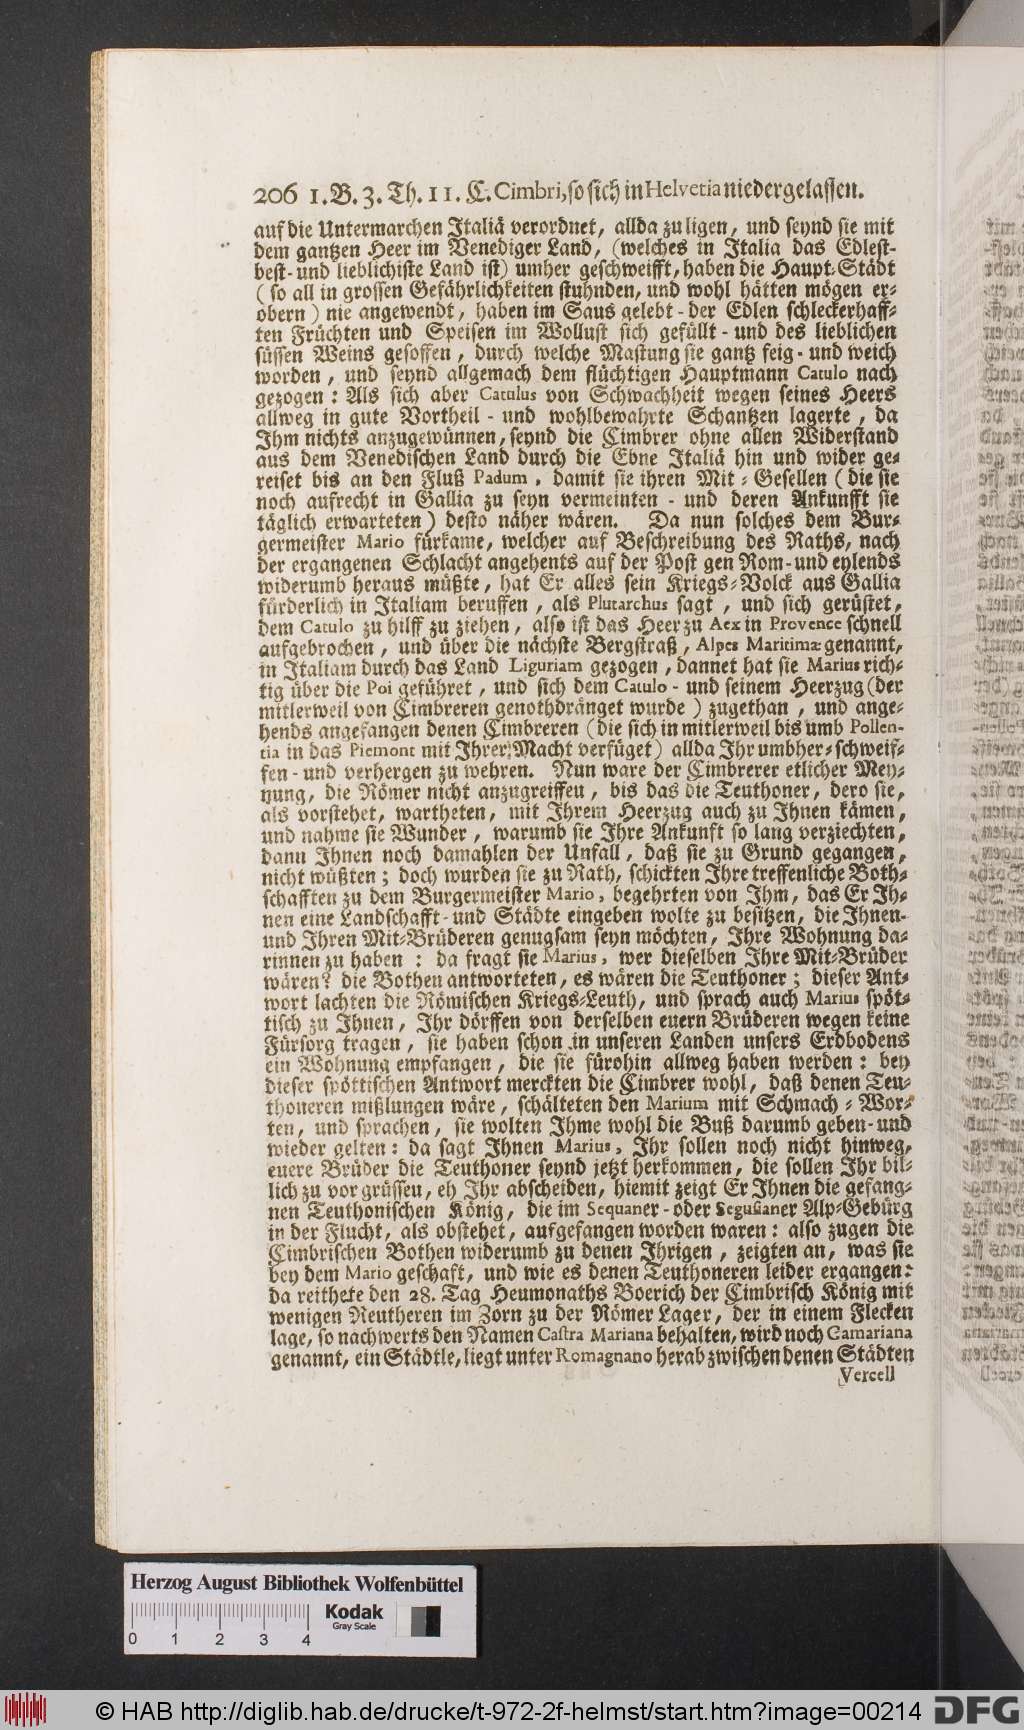 206 1. B. 3. Th. 11. C. Cimbri, so sich in Helvetia niedergelassen.
auf die Untermarchen Italiä verordnet, allda zu ligen, und seynd sie mit
dem gantzen Heer im Venediger Land, (welches in Italia das Edlest-
best- und lieblichiste Land ist) umher geschweifft, haben die Haupt-Städt
( so all in grossen Gefährlichkeiten stuhnden, und wohl hätten mögen er-
obern ) nie angewendt, haben im Saus gelebt - der Edlen schleckerhaff-
ten Früchten und Speisen im Wollust sich gefüllt - und des lieblichen
süssen Weins gesoffen, durch welche Mastung sie gantz feig - und weich
worden, und seynd allgemach dem flüchtigen Hauptmann Catulo nach
gezogen: Als sich aber Catulus von Schwachheit wegen seines Heers
allweg in gute Vortheil - und wohlbewahrte Schantzen lagerte, da
Ihm nichts anzugewünnen, seynd die Cimbrer ohne allen Widerstand
aus dem Venedischen Land durch die Ebne Italiä hin und wider ge-
reiset bis an den Fluß Padum, damit sie ihren Mit-Gesellen (die sie
noch aufrecht in Gallia zu seyn vermeinten - und deren Ankunfft sie
täglich erwarteten) desto näher wären. Da nun solches dem Bur-
germeister Mario fürkame, welcher auf Beschreibung des Raths, nach
der ergangenen Schlacht angehents auf der Post gen Rom- und eylends
widerumb heraus müßte, hat Er alles sein Kriegs-Volck aus Gallia
fürderlich in Italiam beruffen, als Plutarchus sagt, und sich gerüstet,
dem Catulo zu hilff zu ziehen, also ist das Heer zu Aex in Provence schnell
aufgebrochen, und über die nächste Bergstraß, Alpes Maritimæ genannt,
in Italiam durch das Land Liguriam gezogen, dannet hat sie Marius rich-
tig über die Poi geführet, und sich dem Catulo - und seinem Heerzug (der
mitlerweil von Cimbreren genothdränget wurde) zugethan, und ange-
hends angefangen denen Cimbreren (die sich in mitlerweil bis umb Pollen-
tia in das Piemont mit Ihrer Macht verfüget) allda Ihr umbher-schweif-
fen - und verhergen zu wehren. Nun ware der Cimbrerer etlicher Mey-
nung, die Römer nicht anzugreiffen, bis das die Teuthoner, dero sie,
als vorstehet, wartheten, mit Ihrem Heerzug auch zu Ihnen kämen,
und nahme sie Wunder, warumb sie Ihre Ankunft so lang verziechten,
dann Ihnen noch damahlen der Unfall, daß sie zu Grund gegangen,
nicht wüßten; doch wurden sie zu Rath, schickten Ihre treffenliche Both-
schafften zu dem Burgermeister Mario, begehrten von Ihm, das Er Ih-
nen eine Landschafft - und Städte eingeben wolte zu besitzen, die Ihnen-
und Ihren Mit-Brüderen genugsam seyn möchten, Ihre Wohnung da-
rinnen zu haben: da fragt sie Marius, wer dieselben Ihre Mit-Brüder
wären? die Bothen antworteten, es wären die Teuthoner; dieser Ant-
wort lachten die Römischen Kriegs-Leuth, und sprach auch Marius spöt-
tisch zu Ihnen, Ihr dörffen von derselben euern Brüderen wegen keine
Fürsorg tragen, sie haben schon in unseren Landen unsers Erdbodens
ein Wohnung empfangen, die sie fürohin allweg haben werden: bey
dieser spöttischen Antwort merckten die Cimbrer wohl, daß denen Teu-
thoneren mißlungen wäre, schälteten den Marium mit Schmach-Wor-
ten, und sprachen, sie wolten Ihme wohl die Buß darumb geben- und
wieder gelten: da sagt Ihnen Marius, Ihr sollen noch nicht hinweg,
euere Brüder die Teuthoner seynd jetzt herkommen, die sollen Ihr bil-
lich zu vor grüssen, eh Ihr abscheiden, hiemit zeigt Er Ihnen die gefang-
nen Teuthonischen König, die im Sequaner- oder Segusianer Alp-Gebürg
in der Flucht, als obstehet, aufgefangen worden waren: also zugen die
Cimbrischen Bothen widerumb zu denen Ihrigen, zeigten an, was sie
bey dem Mario geschaft, und wie es denen Teuthoneren leider ergangen:
da reithete den 28. Tag Heumonaths Boerich der Cimbrisch König mit
wenigen Reutheren im Zorn zu der Römer Lager, der in einem Flecken
lage, so nachwerts den Namen Castra Mariana behalten, wird noch Camariana
genannt, ein Städtle, liegt unter Romagnano herab zwischen denen Städten
Vercell
Herzog August Bibliothek Wolfenbüttel
Kodak
Gray Scale
0 1 2 3 4
© HAB http://diglib.hab.de/drucke/t-972-2f-helmst/start.htm?image=00214
DFG